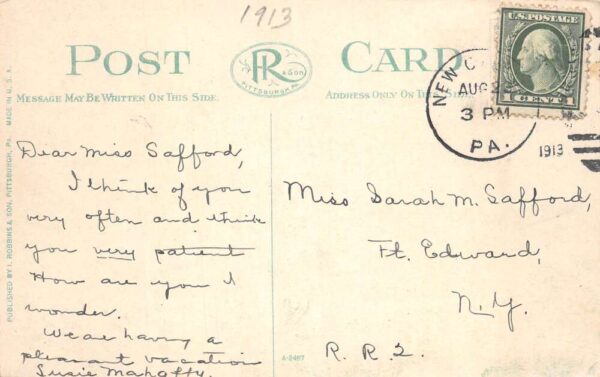 1913
POST CARD
MESSAGE MAY BE WRITTEN ON THIS SIDE.
ADDRESS ONLY ON THIS SIDE
R & SON
PITTSBURGH, PA.
U.S. POSTAGE
1 CENT 1
NEW C
AUG 2
3 PM
PA.
1913
PUBLISHED BY I. ROBBINS & SON, PITTSBURGH, PA. MADE IN U.S.A.
Dear Miss Safford,
I think of you
very often and think
you very patient
How are you I
wonder.
We are having a
pleasant vacation
Susie
Miss Sarah M. Safford,
Ft. Edward,
N.Y.
R. R. 2.